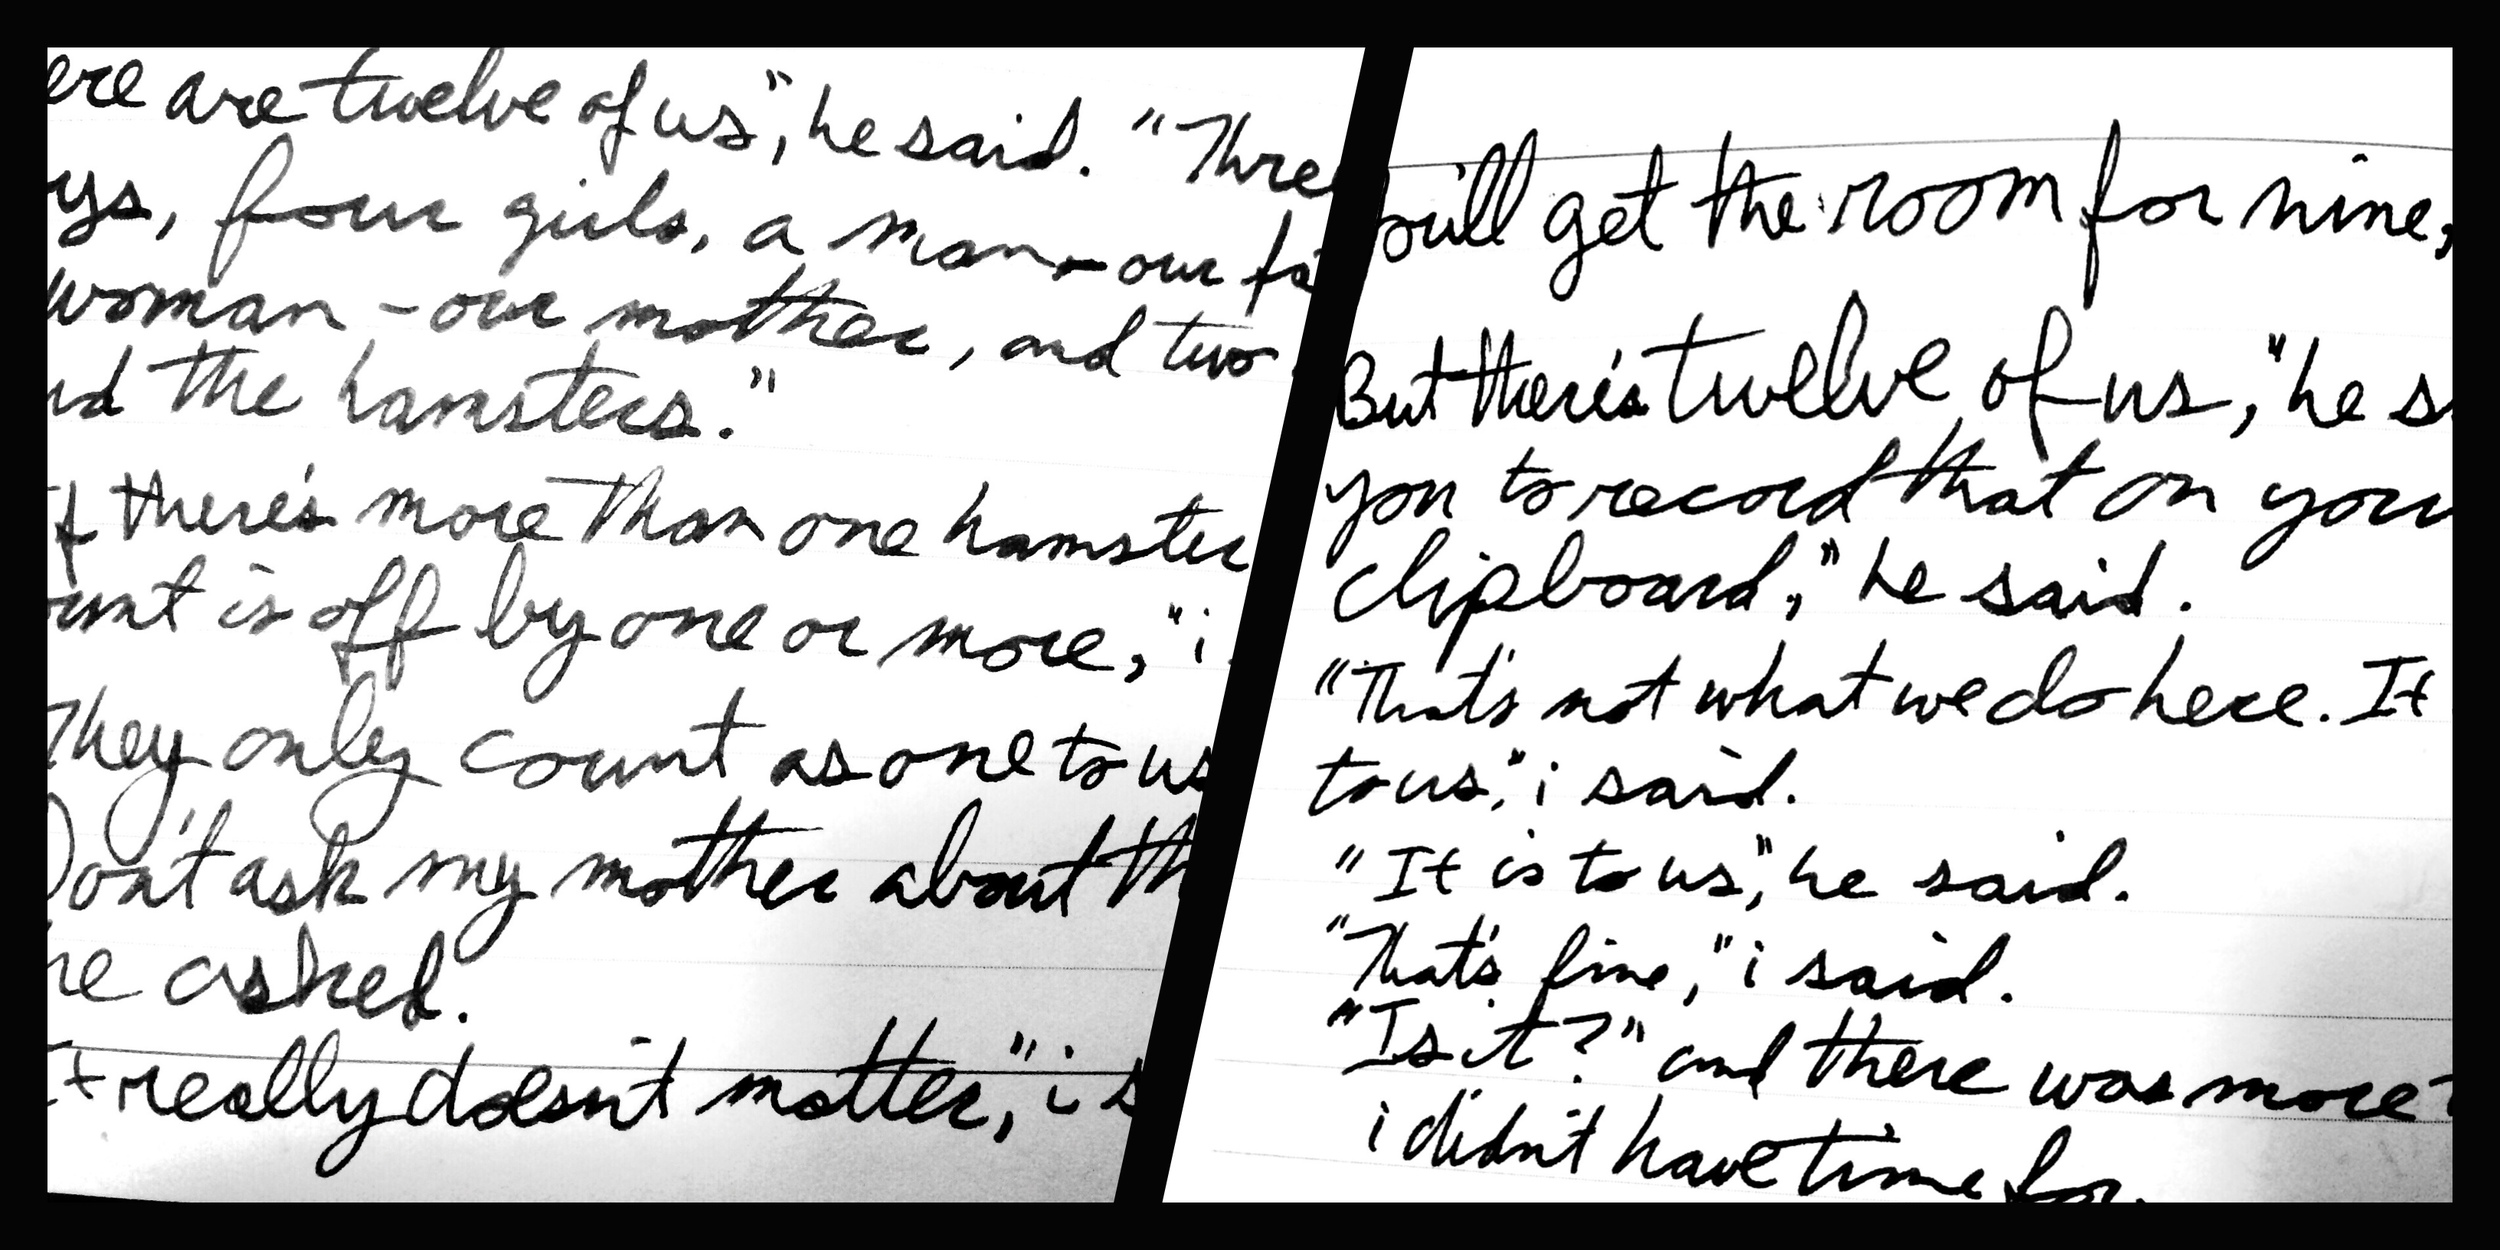 ere are twelve of us", he said. "Thre
ys, four girls, a man - our fa
woman - our mother, and two
nd the hamsters."
f there's more than one hamster
ount is off by one or more," i
They only count as one to us
Don't ask my mother about th
he asked.
It really doesn't matter," i s
will get the room for nine,
But there's twelve of us," he s
you to record that on your
clipboard," he said.
"That's not what we do here. It
to us," i said.
"It is to us," he said.
"That's fine," i said.
"Is it?" and there was more
i didn't have time for.